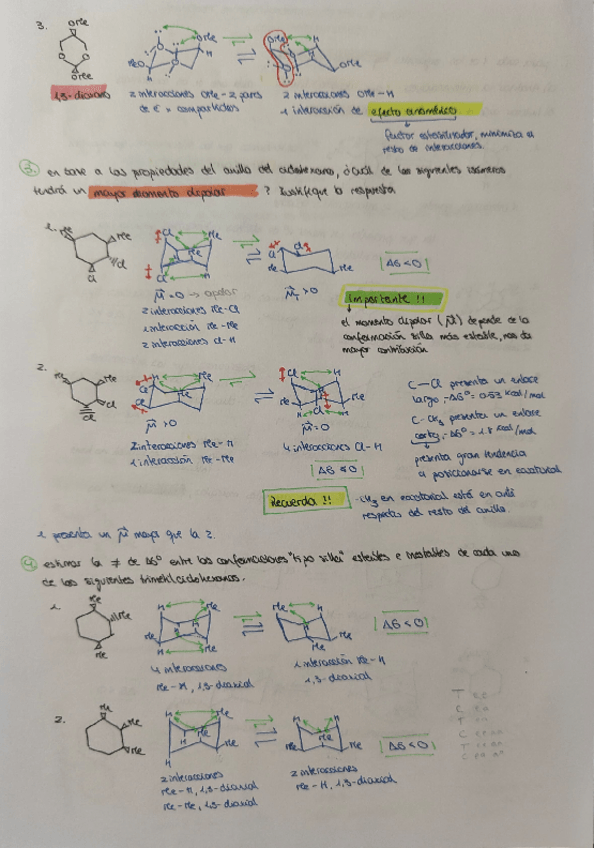 3.
OMe
OMe
OMe
MeO
OMe
OMe
1,3-dioxano
2 interacciones OMe-2 pares
de e⁻ no compartidos
2 interacciones OMe-H
1 interacción de efecto anomérico
factor estabilizador, minimiza el
resto de interacciones.
3. en base a las propiedades del anillo del ciclohexano, ¿cuál de los siguientes isómeros
tendrá un mayor momento dipolar? Justifique la respuesta
1. Me
Me
Cl
Cl
Cl
Me
Me
Cl
H
Cl
Cl
Me
Me
ΔG < 0
μ = 0 → apolar
μ > 0
2 interacciones Me-Cl
1 interacción Me-Me
2 interacciones Cl-H
Importante !!
el momento dipolar (μ) depende de la
conformación silla más estable, nos da
mayor contribución
2.
Me
Me
Cl
Cl
H
Me
Cl
Cl
Cl
H
Cl
H
μ > 0
μ = 0
2 interacciones Me-H
1 interacción Me-Me
4 interacciones Cl-H
ΔG ≤ 0
C-Cl presenta un enlace
largo, -ΔG° = 0.53 kcal/mol
C-CH₃ presenta un enlace
corto, -ΔG° = 1.8 kcal/mol
presenta gran tendencia
a posicionarse en ecuatorial
Recuerda !!
-CH₃ en ecuatorial está en anti
respecto del resto del anillo.
1 presenta un μ mayor que la 2.
4. estimar la ≠ de ΔG° entre las conformaciones "tipo silla" estables e inestables de cada uno
de los siguientes trimetilciclohexanos.
1.
Me
Me
Me
H
Me
Me
H
Me
H
Me
ΔG < 0
4 interacciones
Me-H, 1,3-diaxial
1 interacción Me-H
1,3-diaxial
2.
Me
Me
Me
H
Me
H
Me
Me
H
H
H
Me
Me
Me
ΔG < 0
2 interacciones
Me-H, 1,3-diaxial
Me-Me, 1,3-diaxial
2 interacciones
Me-H, 1,3-diaxial